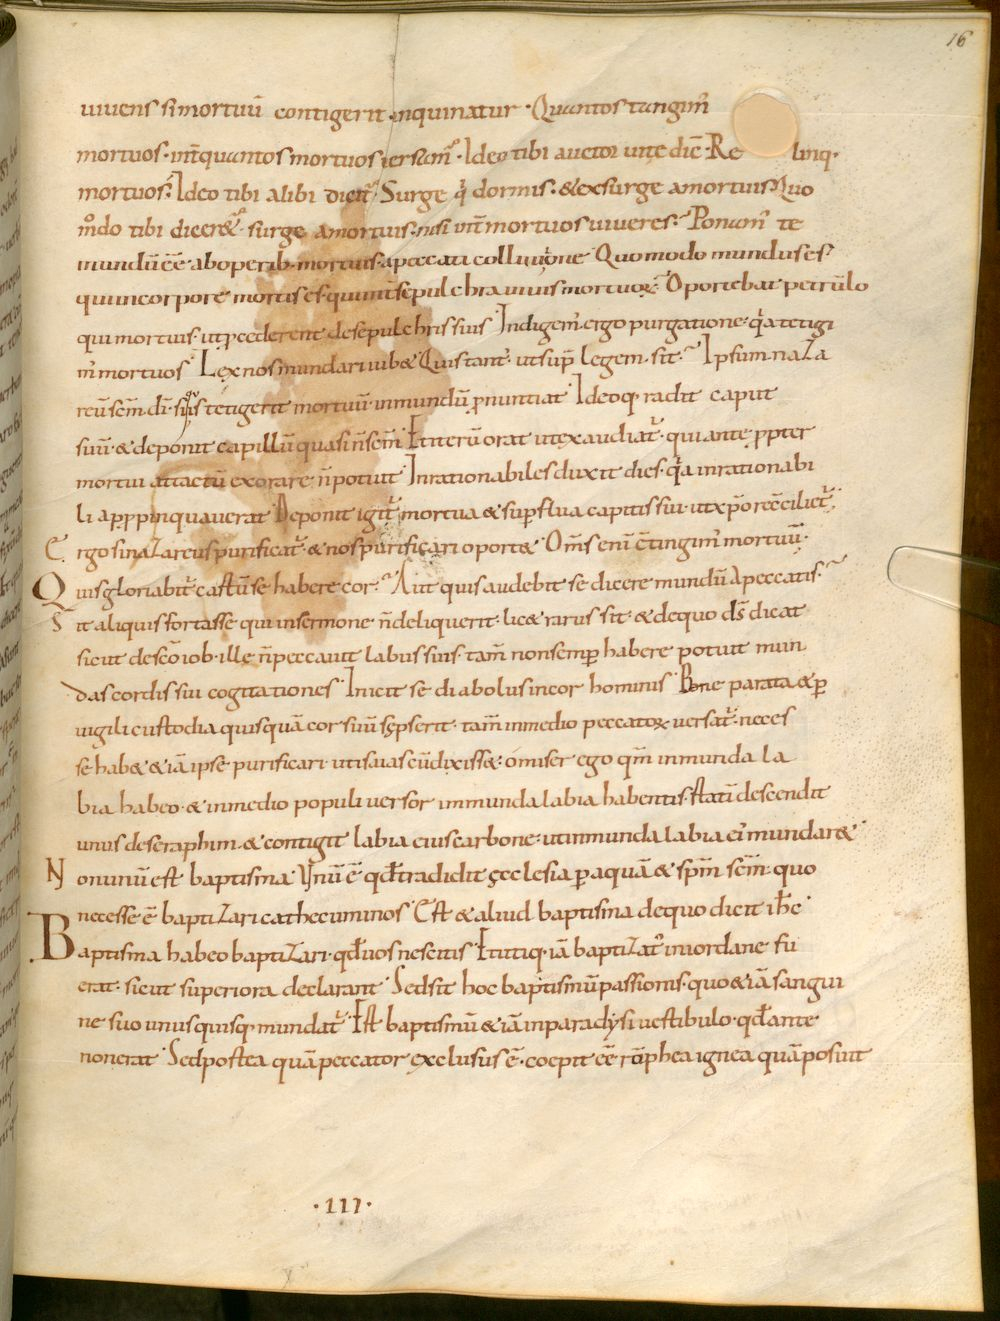 16
uiuens si mortuū contigerit inquinatur · Quantos tangim᷒
mortuos · int̄ quantos mortuos uersam᷒ · Ideo tibi auctor uitę dic̄ · Re linq·
mortuos · Ideo tibi alibi dicit᷒ Surge q̇ dormis · & exsurge amortuis Quo
m̊do tibi diceret᷒ surge amortuis · nisi int̄ mortuos uiueres · Ponam᷒ te
mundū eē ab operib· mortuis · apeccati colluuione Quomodo mundus es
qui in corpore mortis es · qui int̄ sepulchra uiuis mortuoꝝ Oportebat petrū lo
qui mortuis · ut p̄cederent de sepulchris suis Indigem᷒ ergo purgatione · q̇a tetigi
m᷒ mortuos Lex nos mundari iub& Quis tant᷒ · ut sup̄ legem sit · Ipsum naza
reū sc̄m dī · si q̇s tetigerit mortuū · inmundū p̄nuntiat Ideoq· radit caput
suū · & deponit capillū quasi n̄ sc̄m Et iterū orat ut exaudiat᷒ · qui ante ꝓpter
mortui attactū exorare n̄ potuit Inrationabiles duxit dies · q̇a inrationabi
li apꝓpinquauerat Deponit igit᷒ mortua & sup̄flua capitis sui · ut xp̄o recc̄iliet᷒ ·
Ergo si nazareus purificat᷒ · & nos purificari oport& Om̄s enī c̄tingim᷒ mortuū ·
Quis gloriabit᷒ castū se habere cor · Aut quis audebit se dicere mundū apeccatis ·
Sit aliquis fortasse qui in sermone n̄ deliquerit · lic& rarus sit · & de quo ds̄ dicat
sicut de sc̄o iob · ille n̄ peccauit labiis suis · tam̄ non semp̄ habere potuit mun
das cordis sui cogitationes Inicit se diabolus in cor hominis Bene parata & ꝑ
uigili custodia quisquā cor suū sępserit · tam̄ in medio peccatoꝝ uersat᷒ · neces
se hab& & iā ipse purificari · ut isaias cū dixiss& · o miser ego qm̄ inmunda la
bia habeo · & in medio populi uersor inmunda labia habentis · statī descendit
unus de seraphim · & contigit labia eius carbone · ut inmunda labia ei᷒ mundar&
Non unū est baptisma Vnū ē qd̄ tradidit ęcclesia ꝑ aquā & sp̄m sc̄m · quo
necesse ē baptizari cathecuminos Est & aliud baptisma de quo dicit ih̄c
Baptisma habeo baptizari · qd̄ uos nescitis Et utiq· iā baptizat᷒ in iordane fu
erat · sicut superiora declarant Sed sit hoc baptismū passionis · quo & iā sangui
ne suo unusquisq· mundat᷒ Est baptismū & iā in paradysi uestibulo · qd̄ ante
non erat Sed postea quā peccator exclusus ē · coepit eē rōphea ignea quā posuit
· III ·